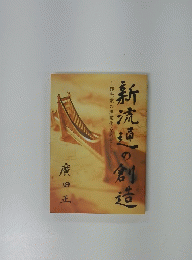 新流通の創造
廣田正